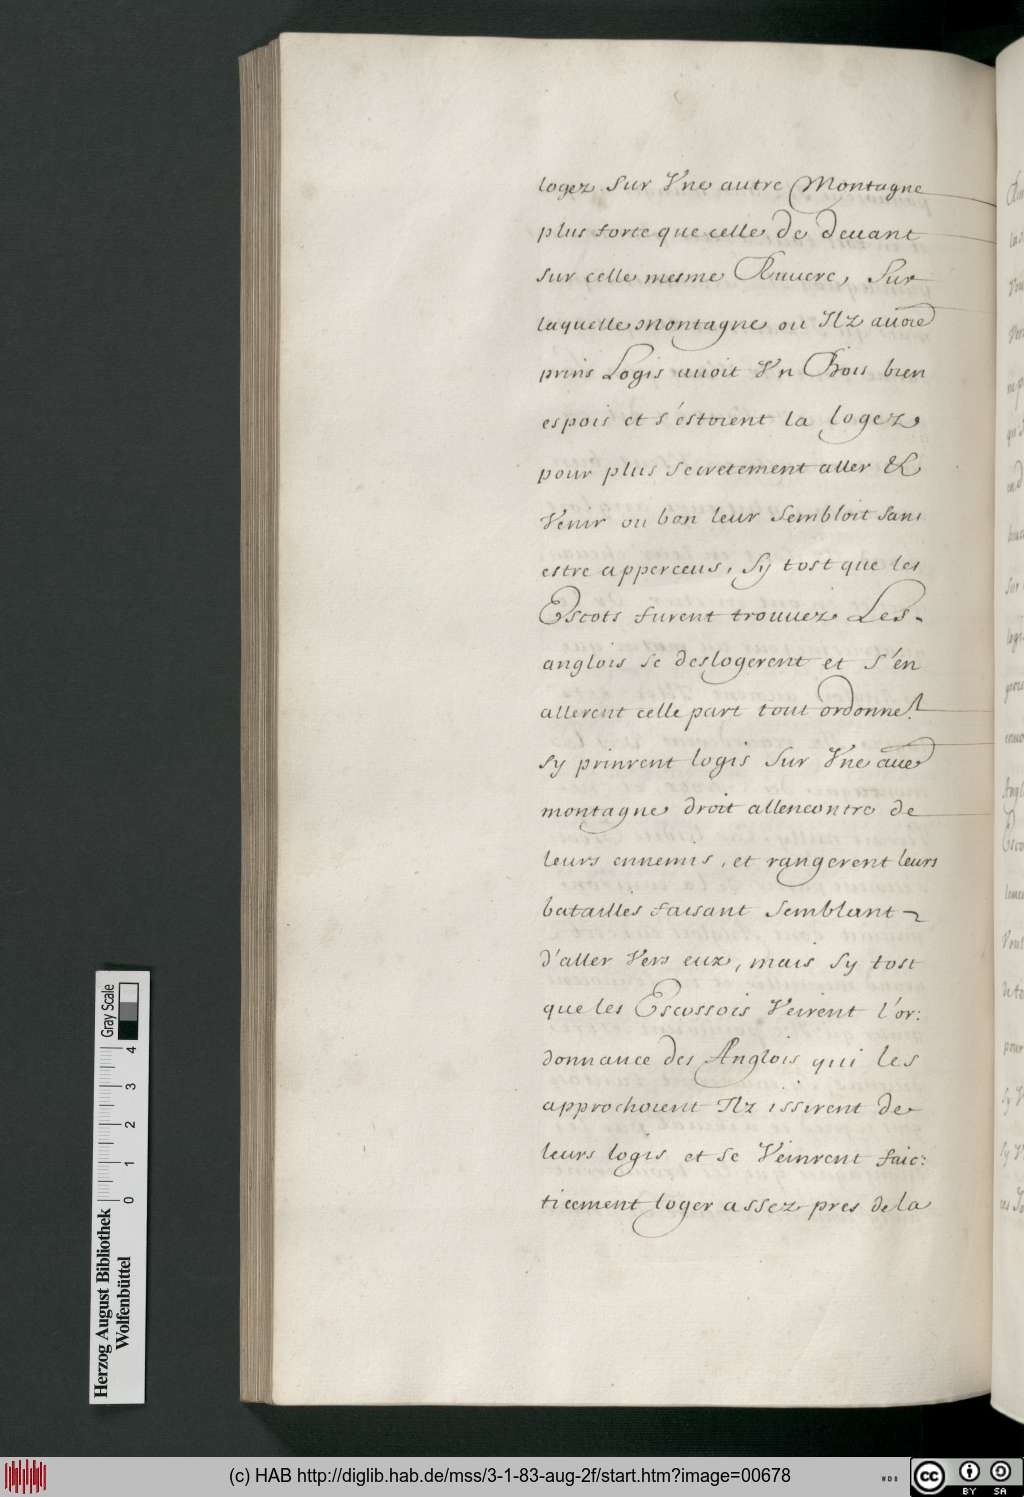 logez sur Vne autre Montagne
plus forte que celle de deuant
sur celle mesme Riuiere, Sur
laquelle montagne ou Ilz auoie
prins Logis auoit Vn Bois bien
espois et s'estoient la logez
pour plus secretement aller &
Venir ou bon leur sembloit sans
estre apperceus, Sy tost que les
Escots furent trouuez Les
anglois se deslogerent et s'en
allerent celle part tout ordonnez
sy prinrent logis sur Vne aue
montagne droit allencontre de
leurs ennemis, et rangerent leurs
batailles faisant semblant
d'aller Vers eux, mais sy tost
que les Escossois Veirent l'or:
donnance des Anglois qui les
approchoient Ilz issirent de
leurs logis et se Veinrent faic:
ticement loger assez pres de la
Gray Scale
0 1 2 3 4
Herzog August Bibliothek
Wolfenbüttel
(c) HAB http://diglib.hab.de/mss/3-1-83-aug-2f/start.htm?image=00678
WDB
CC BY SA